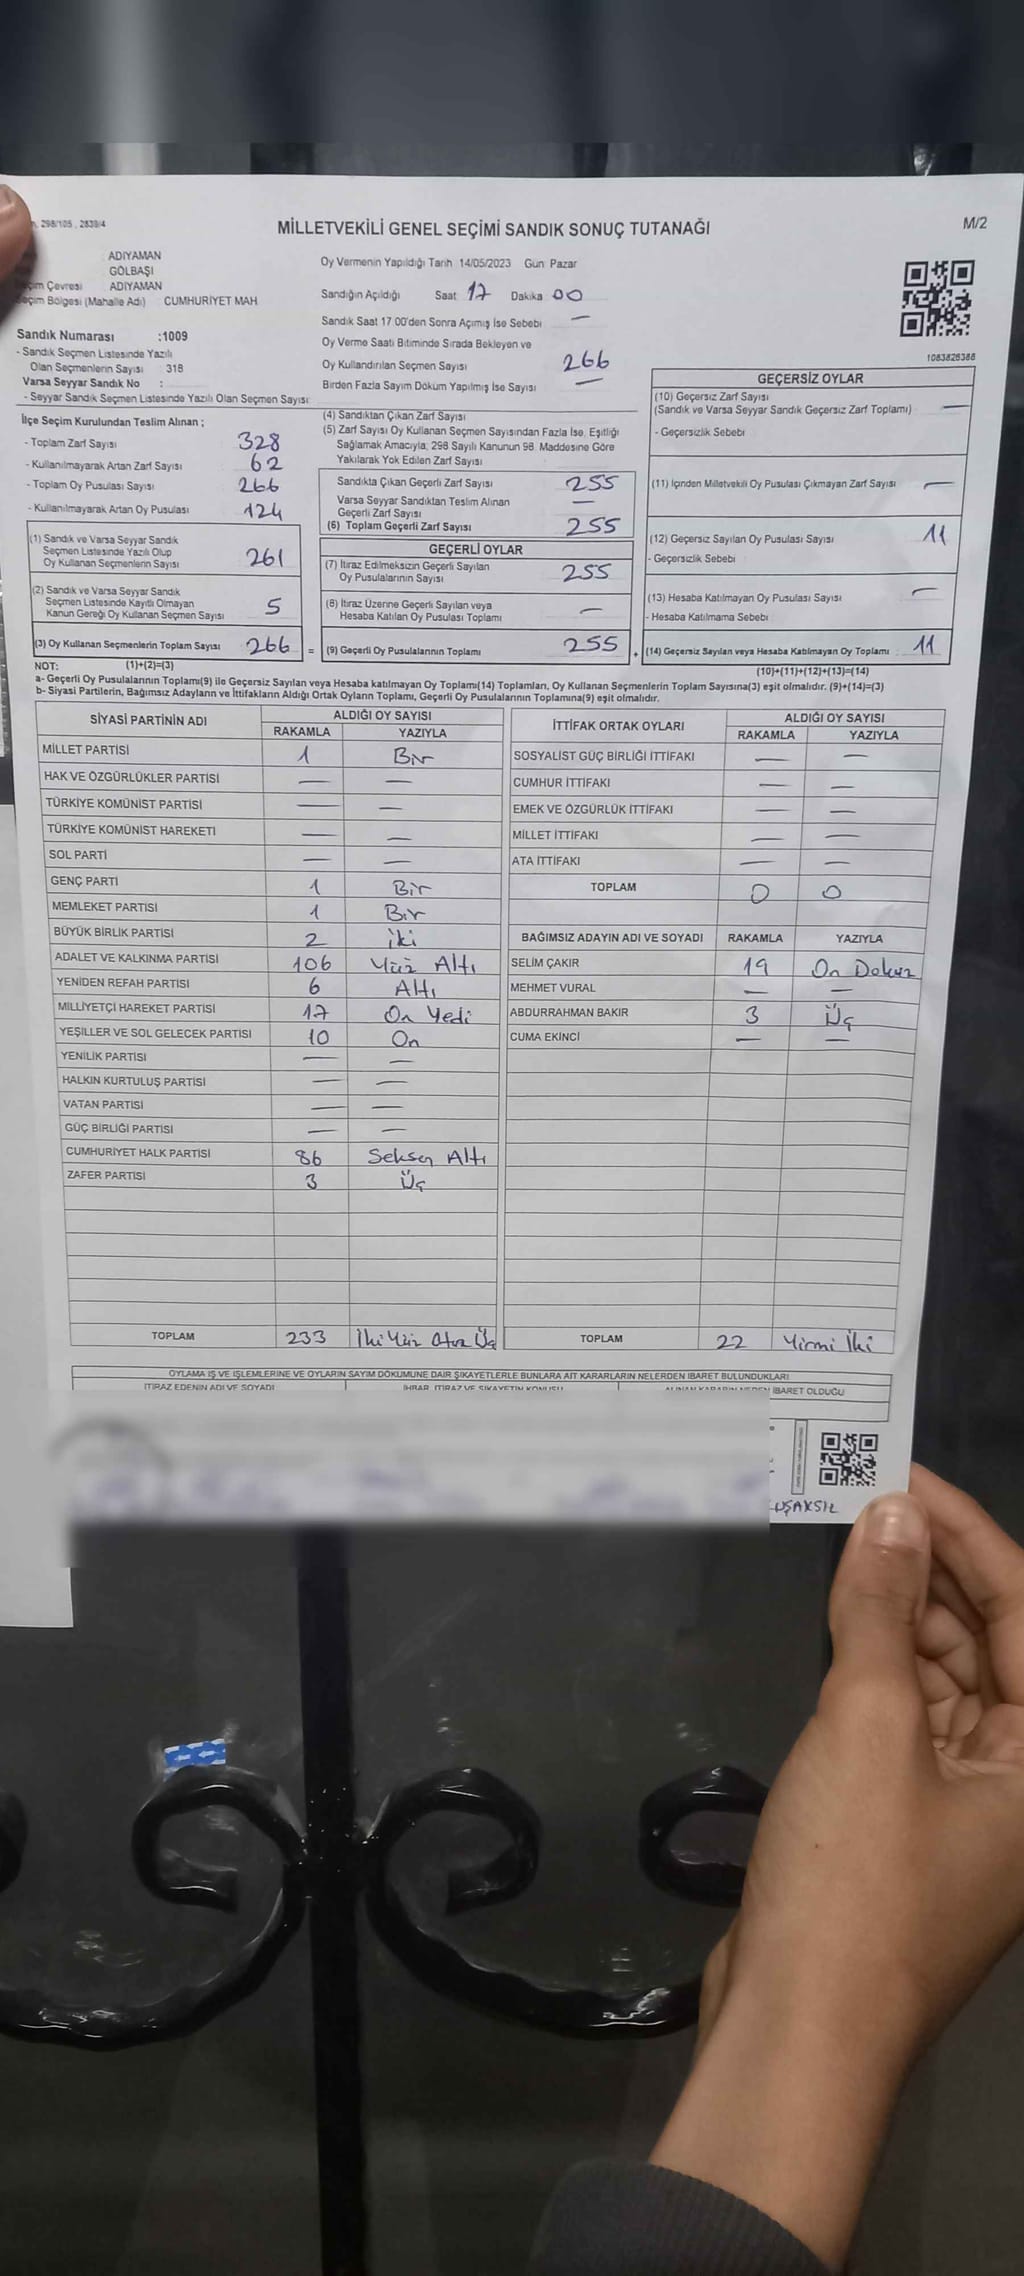 298/105 , 2839/4
MİLLETVEKİLİ GENEL SEÇİMİ SANDIK SONUÇ TUTANAĞI
M/2
: ADIYAMAN
GÖLBAŞI
Seçim Çevresi : ADIYAMAN
Seçim Bölgesi (Mahalle Adı) : CUMHURİYET MAH
Sandık Numarası :1009
- Sandık Seçmen Listesinde Yazılı
Olan Seçmenlerin Sayısı : 318
Varsa Seyyar Sandık No :
- Seyyar Sandık Seçmen Listesinde Yazılı Olan Seçmen Sayısı:
Oy Vermenin Yapıldığı Tarih 14/05/2023 Gün: Pazar
Sandığın Açıldığı Saat 17 Dakika 00
Sandık Saat 17 00'den Sonra Açımış İse Sebebi —
Oy Verme Saati Bitiminde Sırada Bekleyen ve
Oy Kullandırılan Seçmen Sayısı 266
Birden Fazla Sayım Döküm Yapılmış İse Sayısı —
1083828388
İlçe Seçim Kurulundan Teslim Alınan ;
- Toplam Zarf Sayısı 328
- Kullanılmayarak Artan Zarf Sayısı 62
- Toplam Oy Pusulası Sayısı 266
- Kullanılmayarak Artan Oy Pusulası 124
(1) Sandık ve Varsa Seyyar Sandık
Seçmen Listesinde Yazılı Olup
Oy Kullanan Seçmenlerin Sayısı 261
(2) Sandık ve Varsa Seyyar Sandık
Seçmen Listesinde Kayıtlı Olmayan
Kanun Gereği Oy Kullanan Seçmen Sayısı 5
(3) Oy Kullanan Seçmenlerin Toplam Sayısı 266 =
(4) Sandıktan Çıkan Zarf Sayısı
(5) Zarf Sayısı Oy Kullanan Seçmen Sayısından Fazla İse, Eşitliği
Sağlamak Amacıyla, 298 Sayılı Kanunun 98. Maddesine Göre
Yakılarak Yok Edilen Zarf Sayısı
Sandıkta Çıkan Geçerli Zarf Sayısı 255
Varsa Seyyar Sandıktan Teslim Alınan
Geçerli Zarf Sayısı —
(6) Toplam Geçerli Zarf Sayısı 255
GEÇERLİ OYLAR
(7) İtiraz Edilmeksizin Geçerli Sayılan
Oy Pusulalarının Sayısı 255
(8) İtiraz Üzerine Geçerli Sayılan veya
Hesaba Katılan Oy Pusulası Toplamı —
(9) Geçerli Oy Pusulalarının Toplamı 255 +
GEÇERSİZ OYLAR
(10) Geçersiz Zarf Sayısı
(Sandık ve Varsa Seyyar Sandık Geçersiz Zarf Toplamı) —
- Geçersizlik Sebebi
(11) İçinden Milletvekili Oy Pusulası Çıkmayan Zarf Sayısı —
(12) Geçersiz Sayılan Oy Pusulası Sayısı 11
- Geçersizlik Sebebi
(13) Hesaba Katılmayan Oy Pusulası Sayısı —
- Hesaba Katılmama Sebebi
(14) Geçersiz Sayılan veya Hesaba Katılmayan Oy Toplamı : 11
NOT: (1)+(2)=(3) (10)+(11)+(12)+(13)=(14)
a- Geçerli Oy Pusulalarının Toplamı(9) ile Geçersiz Sayılan veya Hesaba katılmayan Oy Toplamı(14) Toplamları, Oy Kullanan Seçmenlerin Toplam Sayısına(3) eşit olmalıdır. (9)+(14)=(3)
b- Siyasi Partilerin, Bağımsız Adayların ve İttifakların Aldığı Ortak Oyların Toplamı, Geçerli Oy Pusulalarının Toplamına(9) eşit olmalıdır.
SİYASİ PARTİNİN ADI ALDIĞI OY SAYISI
RAKAMLA YAZIYLA
MİLLET PARTİSİ 1 Bir
HAK VE ÖZGÜRLÜKLER PARTİSİ — —
TÜRKİYE KOMÜNİST PARTİSİ — —
TÜRKİYE KOMÜNİST HAREKETİ — —
SOL PARTİ — —
GENÇ PARTİ 1 Bir
MEMLEKET PARTİSİ 1 Bir
BÜYÜK BİRLİK PARTİSİ 2 iki
ADALET VE KALKINMA PARTİSİ 106 Yüz Altı
YENİDEN REFAH PARTİSİ 6 Altı
MİLLİYETÇİ HAREKET PARTİSİ 17 On Yedi
YEŞİLLER VE SOL GELECEK PARTİSİ 10 On
YENİLİK PARTİSİ — —
HALKIN KURTULUŞ PARTİSİ — —
VATAN PARTİSİ — —
GÜÇ BİRLİĞİ PARTİSİ — —
CUMHURİYET HALK PARTİSİ 86 Seksen Altı
ZAFER PARTİSİ 3 Üç
TOPLAM 233 İki Yüz Otuz Üç
İTTİFAK ORTAK OYLARI ALDIĞI OY SAYISI
RAKAMLA YAZIYLA
SOSYALİST GÜÇ BİRLİĞİ İTTİFAKI — —
CUMHUR İTTİFAKI — —
EMEK VE ÖZGÜRLÜK İTTİFAKI — —
MİLLET İTTİFAKI — —
ATA İTTİFAKI — —
TOPLAM 0 0
BAĞIMSIZ ADAYIN ADI VE SOYADI RAKAMLA YAZIYLA
SELİM ÇAKIR 19 On Dokuz
MEHMET VURAL — —
ABDURRAHMAN BAKIR 3 Üç
CUMA EKİNCİ — —
TOPLAM 22 Yirmi İki
OYLAMA İŞ VE İŞLEMLERİNE VE OYLARIN SAYIM DÖKÜMÜNE DAİR ŞİKAYETLERLE BUNLARA AİT KARARLARIN NELERDEN İBARET BULUNDUKLARI
İTİRAZ EDENİN ADI VE SOYADI İHBAR, İTİRAZ VE ŞİKAYETİN KONUSU ALINAN KARARIN NEDEN İBARET OLDUĞU